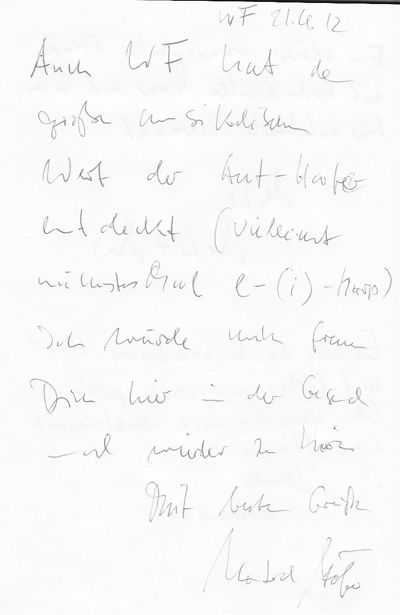 WF 21.4.12
Auch WF hat den
großen musikalischen
Wert der Aut-Harfe
entdeckt (vielleicht
nächstes Mal e-(i)-Harp)
Ich würde mich freuen
Dich hier in der Gegend
mal wieder zu hören
Mit besten Grüßen